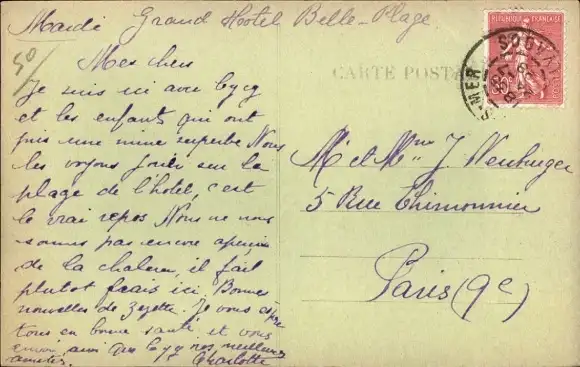 Mardi Grand Hotel Belle-Plage
50
Mes chers
Je suis ici avec
et les enfants qui ont
pris une mine superbe Nous
les voyons jouer sur la
plage de l'hotel, c'est
le vrai repos Nous ne nous
sommes pas encore aperçus
de la chaleur, il fait
plutot frais ici. Bonnes
nouvelles de Zezette. Je vous espère
tous en bonne santé et vous
envoie, ainsi que nos meilleures
amitiés. Charlotte
CARTE POSTALE
REPUBLIQUE FRANÇAISE
S-MER
M. et Mme J.
5 Rue Thimonnier
Paris (9e)